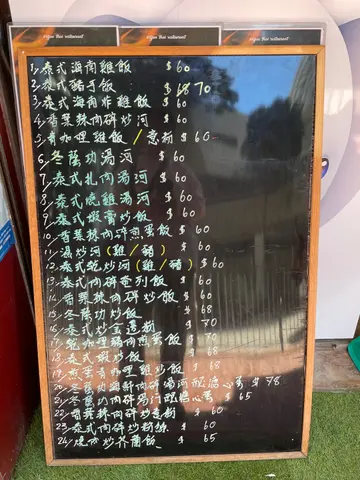 Thai Restaurant
Thai Restaurant
Thai Restaurant
1, 泰式海南雞飯 $60
2, 泰式豬手飯 $68 70
3, 泰式海南炸雞飯 $60
4, 香葉辣肉碎炒河 $60
5, 青咖哩雞飯/意粉 $60
6, 冬蔭功湯河 $60
7, 泰式扎肉湯河 $60
8, 泰式燒雞湯河 $60
9, 泰式蝦膏炒飯 $60
10, 香葉辣肉碎煎蛋飯 $60
11, 濕炒河(雞/豬) $60
12, 泰式乾炒河(雞/豬) $60
13, 泰式肉碎奄列飯 $60
14, 香葉辣肉碎炒飯 $60
15, 冬蔭功炒飯 $68
16, 泰式炒金邊粉 $70
17, 乾咖哩豬肉煎蛋飯 $70
18, 泰式蝦炒飯 $68
19, 煎蛋青咖哩雞炒飯 $68
20, 冬蔭功海鮮肉碎湯河配溏心蛋 $78
21, 冬蔭功肉碎湯河配溏心蛋 $65
22, 香葉辣肉碎炒意粉 $60
23, 泰式肉碎炒粉絲 $60
24, 燒肉炒芥蘭飯 $65